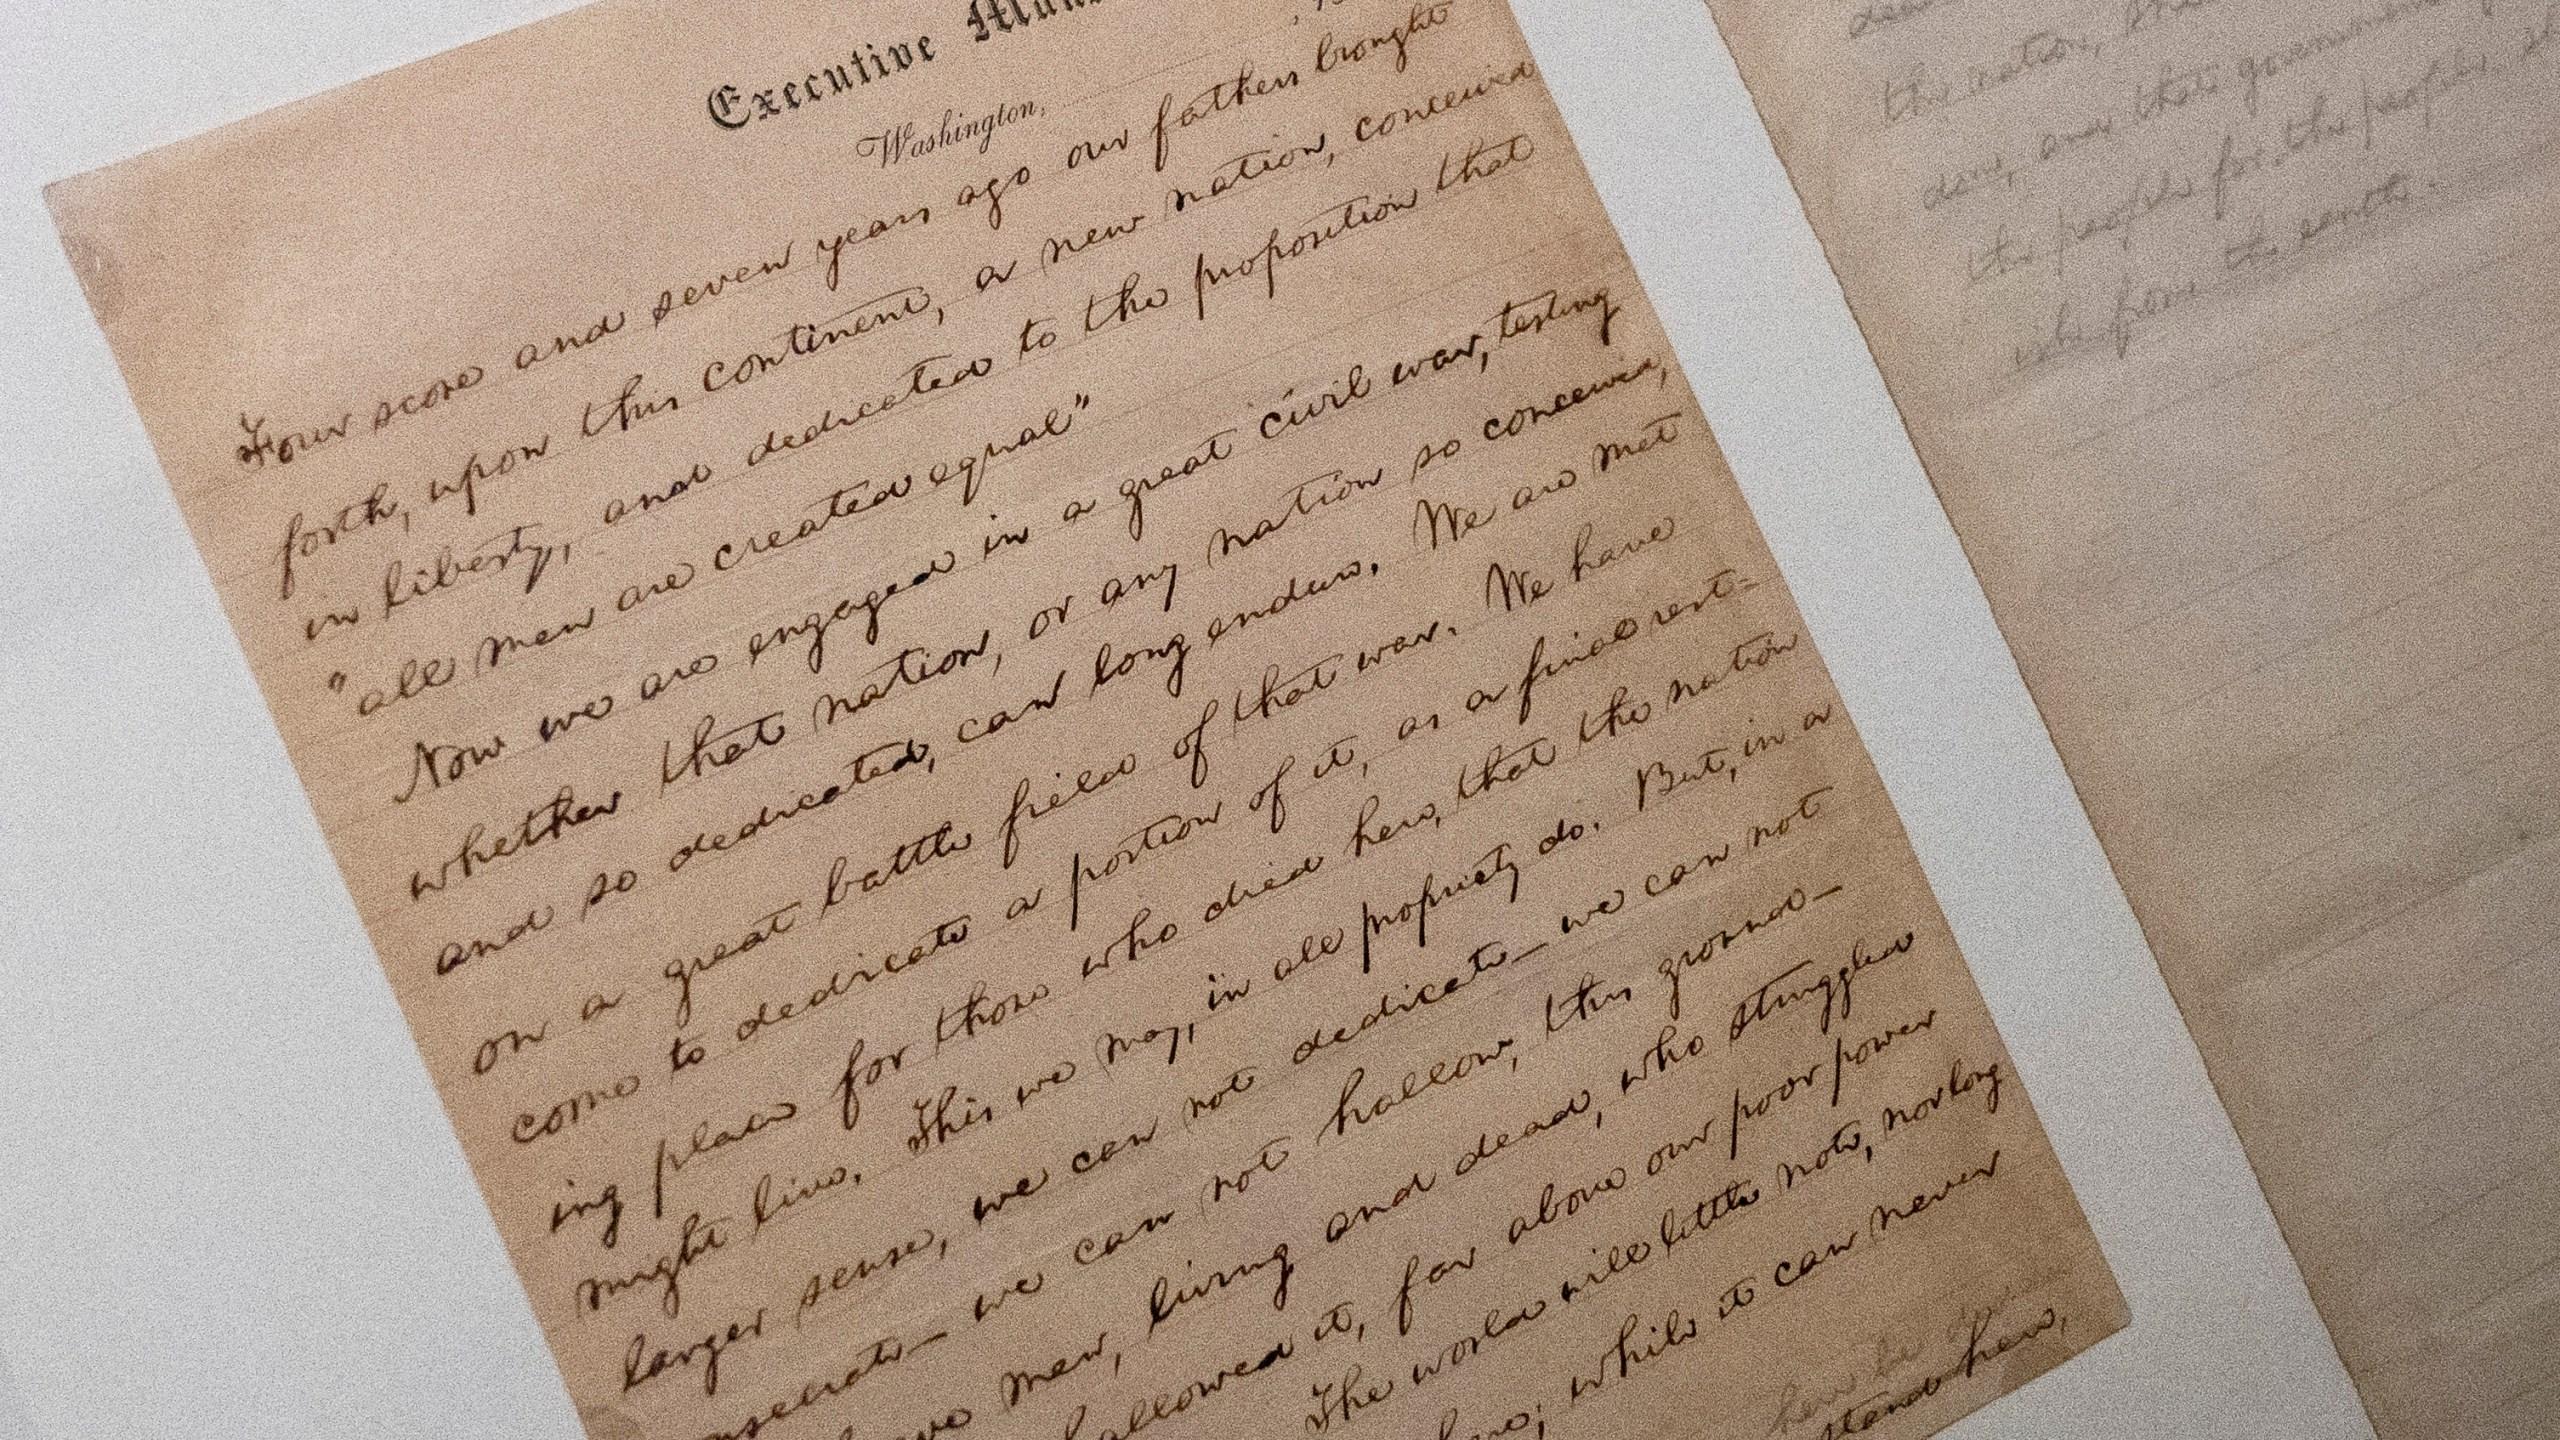 Executive
Washington,
Four score and seven years ago our fathers brought
forth, upon this continent, a new nation, conceived
in liberty, and dedicated to the proposition that
"all men are created equal"
Now we are engaged in a great civil war, testing
whether that nation, or any nation so conceived,
and so dedicated, can long endure. We are met
on a great battle field of that war. We have
come to dedicate a portion of it, as a final rest-
ing place for those who died here, that the nation
might live. This we may, in all propriety do. But, in a
larger sense, we can not dedicate — we can not
we can not hallow, this ground —
men, living and dead, who struggled
it, far above our poor power
The world will little note, nor long
while it can never
stand here,
the nation,
done, and that government
the people for the people
from the earth.